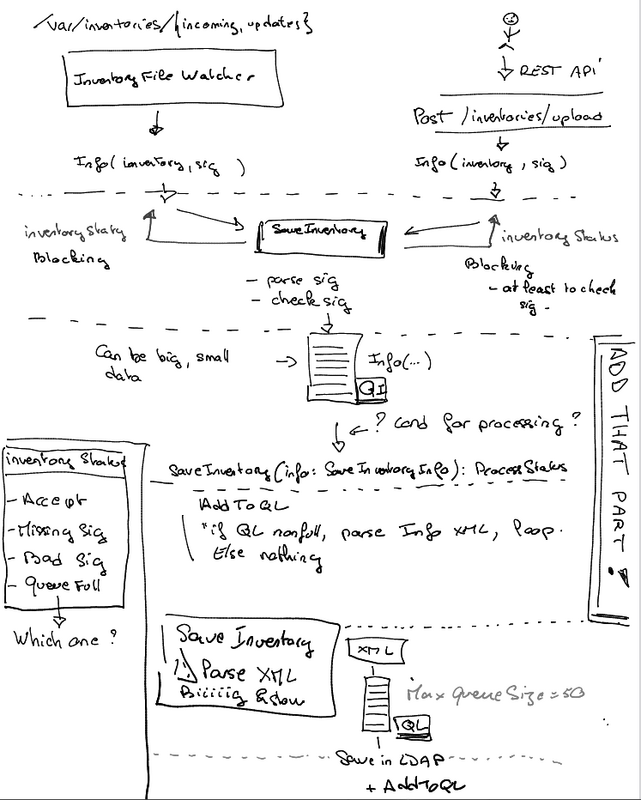 /var/inventories/{incoming, updates}
Inventory File Watcher
REST API
Post /inventories/upload
Info(inventory, sig )
Info(inventory, sig)
inventory Status
Blocking
Save Inventory
inventory Status
Blocking
- at least to check
sig -
- parse sig
- check sig
Can be big, small
data
Info(...)
QI
ADD THAT PART !
? Cond for processing ?
Save Inventory (info: Save Inventory Info): Process Status
inventory Status
- Accept
- Missing Sig
- Bad Sig
- Queue Full
Which one ?
Add To QL
*if QL nonfull, parse Info XML, loop.
Else nothing
Save Inventory
!! Parse XML
Biiiiiig & slow
XML
Max Queue Size = 50
QL
Save in LDAP
+ Add To QL